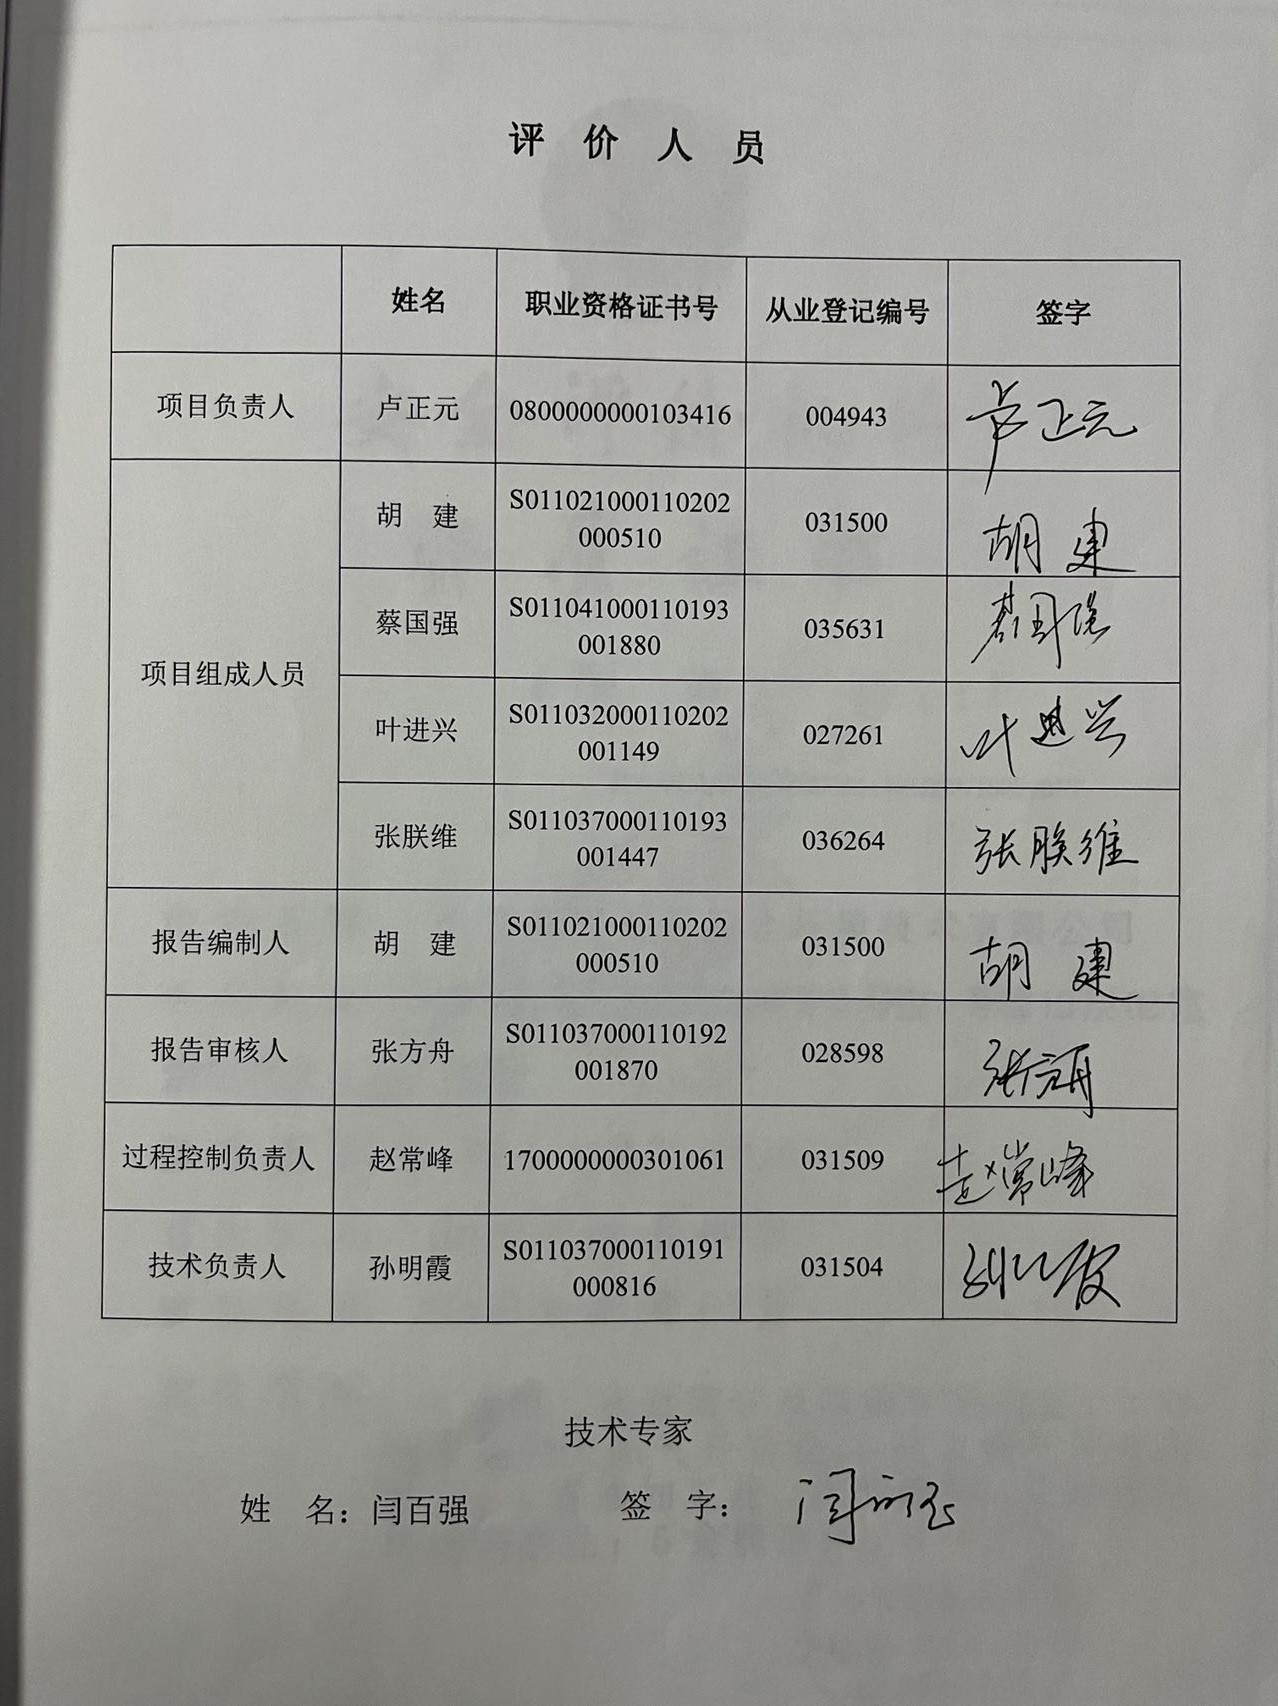 评 价 人 员
姓名 职业资格证书号 从业登记编号 签字
项目负责人 卢正元 0800000000103416 004943 卢正元
项目组成人员
胡 建 S011021000110202 031500 胡建
000510
蔡国强 S011041000110193 035631 蔡国强
001880
叶进兴 S011032000110202 027261 叶进兴
001149
张朕维 S011037000110193 036264 张朕维
001447
报告编制人 胡 建 S011021000110202 031500 胡建
000510
报告审核人 张方舟 S011037000110192 028598 张方舟
001870
过程控制负责人 赵常峰 1700000000301061 031509 赵常峰
技术负责人 孙明霞 S011037000110191 031504
000816
技术专家
姓 名：闫百强 签 字：